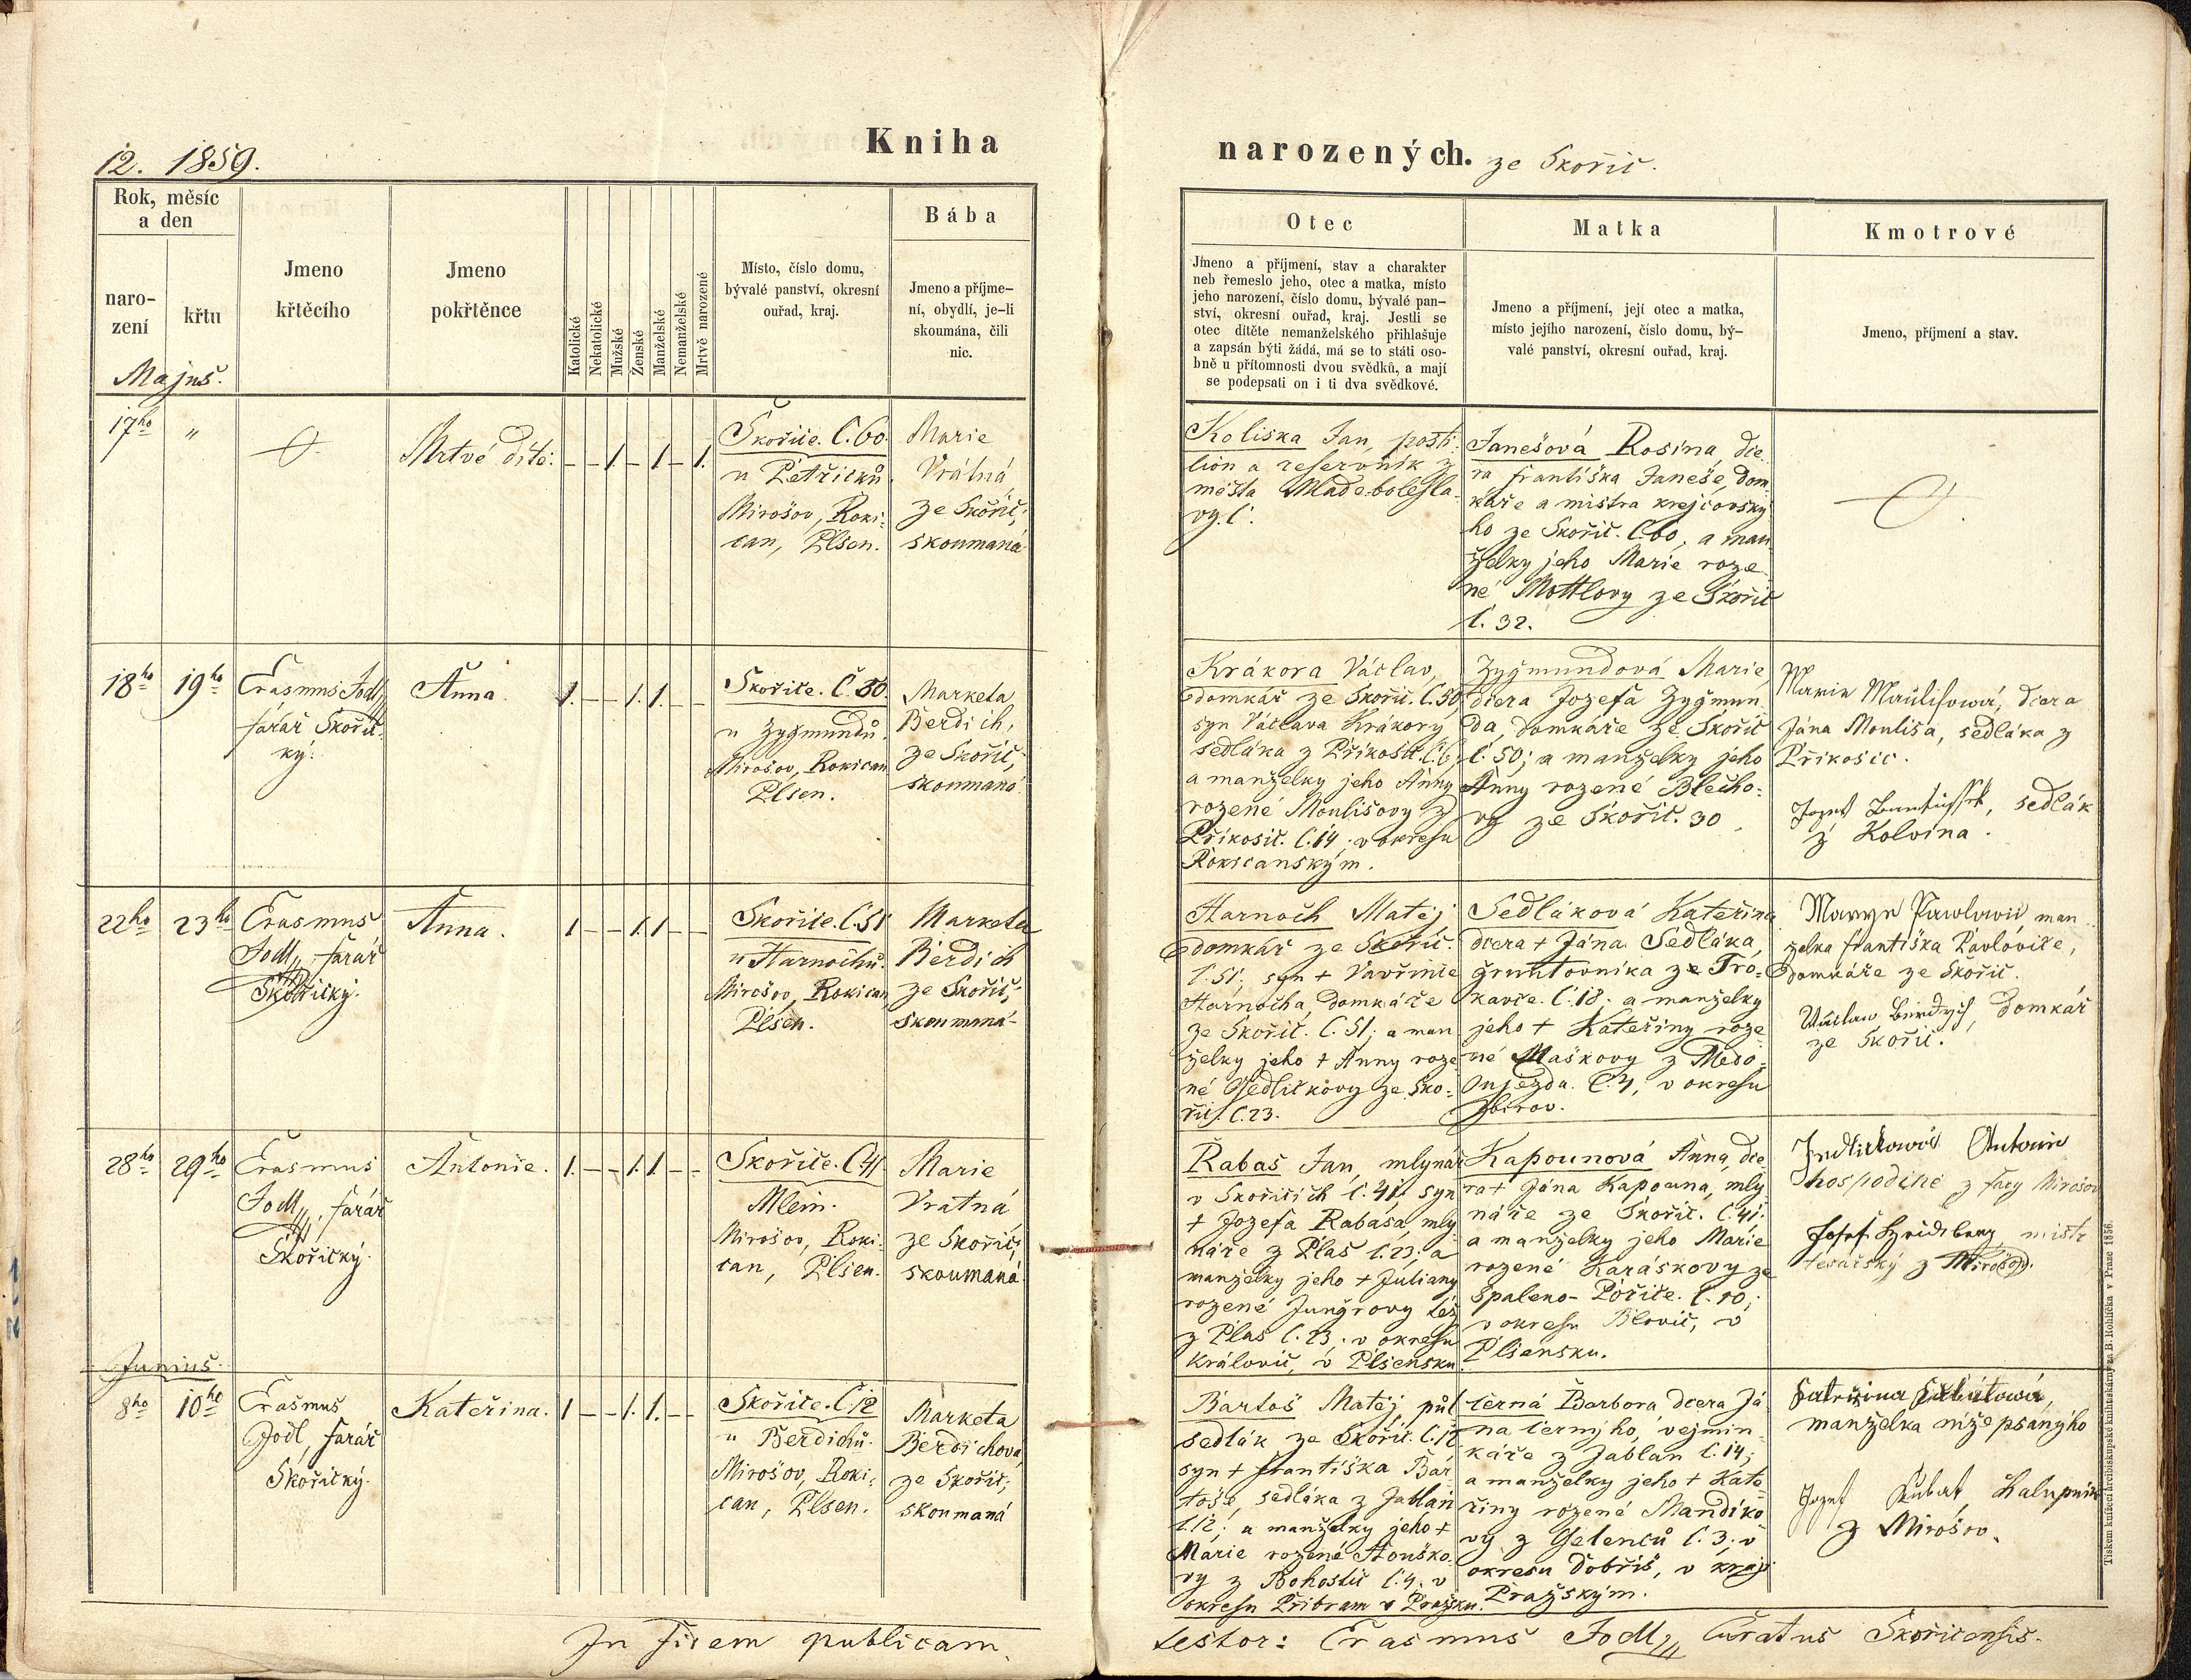 12. 1859.
Kniha
narozených. ze Skořic.
Rok, měsíc
a den
naro-
zení
křtu
Majus.
Jmeno
křtěcího
Jmeno
pokřtěnce
Katolické
Nekatolické
Mužské
Ženské
Manželské
Nemanželské
Mrtvě narozené
Místo, číslo domu,
bývalé panství, okresní
ouřad, kraj.
Bába
Jmeno a příjme-
ní, obydlí, je-li
skoumána, čili
nic.
Otec
Jmeno a příjmení, stav a charakter
neb řemeslo jeho, otec a matka, místo
jeho narození, číslo domu, bývalé pan-
ství, okresní ouřad, kraj. Jestli se
otec dítěte nemanželského přihlašuje
a zapsán býti žádá, má se to státi oso-
bně u přítomnosti dvou svědků, a mají
se podepsati on i ti dva svědkové.
Matka
Jmeno a příjmení, její otec a matka,
místo jejího narození, číslo domu, bý-
valé panství, okresní ouřad, kraj.
Kmotrové
Jmeno, příjmení a stav.
17ho "
Mrtvé dítě.
– – 1. – 1 – 1.
Skořice. č. 60.
u Petřicků
Mirošov, Roki-
can, Plsen.
Marie
Vrátná
ze Skořic,
skoumaná
Koliska Jan, posti-
lion a reservník z
města Mladeboleſla-
vy. č.
Janešová Rosina, dce-
ra františka Janeše, dom-
káře a mistra krejčovský-
ho ze Skořic. č. 60; a man-
želky jeho Marie roze-
né Mottlovy ze Skořic
č. 32.
18ho 19ho
Erasmus Jodl,
farář Skořic-
ký.
Anna.
1. – – 1. 1. – –
Skořice. č. 50.
u Zygmundů.
Mirošov, Rokican
Plsen.
Marketa
Berdich,
ze Skořic,
skoumaná.
Krákora Václav,
domkář ze Skořic. č. 50,
syn Václava Krákory
sedláka z Příkosic č. 6,
a manželky jeho Anny
rozené Moulisovy z
Příkosic. č. 14; v okreſu
Rokicanským.
Zygmundová Marie,
dcera Jozefa Zygmun-
da, domkáře ze Skořic
č. 50; a manželky jeho
Anny rozené Blecho-
vy ze Skořic. 30
Marie Mauliſowá, dcera
Jána Moulisa, sedláka z
Příkosic.
Jozef, sedlák
z Kolvína.
22ho 23ho
Erasmus
Jodl, farář
Skořický.
Anna.
1 – – 1. 1 – –
Skořice. č. 51
u Harnochů.
Mirošov, Rokican
Plsen.
Marketa
Berdich
ze Skořic,
skoumaná
Harnoch Matěj
domkář ze Skořic.
č. 51; syn + Vavřince
Harnocha, domkáře
ze Skořic. č. 51; a man-
želky jeho + Anny roze-
né Sedličkovy ze Sko-
řic. č. 23.
Sedláková Kateřina
dcera + Jána Sedláka,
gruntovníka ze Tro-
kavce. č. 18; a manželky
jeho + Kateřiny roze-
né Maškovy z Medo-
oujezda. č. 4, v okreſu
Zbirov.
Marye Pawlowic man-
želka františka Pavlovice,
domkáře ze Skořic.
Václaw Berdych, domkář
ze Skořic.
28ho 29ho
Erasmus
Jodl, farář
Skořický.
Antonie.
1. – – 1. 1 – –
Skořice. č. 41.
Mlein.
Mirošov, Roki-
can, Plsen.
Marie
Vratná
ze Skořic,
skoumaná.
Rabas Jan, mlynář
v Skořicích č. 41. syn
+ Jozefa Rabasa, mly-
náře z Plas č. 23; a
manželky jeho + Juliany
rozené Jungrovy též
z Plas č. 23. v okreſu
Královic, v Plsensku
Kapounová Anna, dce-
ra + Jána Kapouna, mly-
náře ze Skořic. č. 41.
a manželky jeho Marie
rozené Karáskovy ze
Spaleno-Pořiče. č. 10;
v okreſu Blovic, v
Plsensku.
Antonie
hospodině z fary Mirošov
Josef, mistr
tesařský z Mirošov.
Junius.
8ho 10ho
Erasmus
Jodl, farář
Skořický.
Kateřina.
1 – – 1. 1. – –
Skořice. č. 12
u Berdichů.
Mirošov, Roki-
can, Plsen.
Marketa
Berdichova,
ze Skořic,
skoumaná
Bartoš Matěj, půl-
sedlák ze Skořic. č. 12
syn + františka Bar-
toše, sedláka z Jablan
č. 12; a manželky jeho +
Marie rozené Houško-
vy z Bohostic č. 4. v
okreſu Příbram v Pražsku.
černá Barbora, dcera Já-
na černýho, vejmin-
káře z Jablan č. 14;
a manželky jeho + Kate-
řiny rozené Mandíko-
vy z Gelenců č. 3; v
okresu Dobříš, v kraji
Pražským.
Kateřina Kubátowá,
manželka níže psanýho
Jozef Kubat, Kalupník
z Mirošov.
In fidem publicam.
testor: Erasmus Jodl, Curatus Skořicensis.
Tiskem knížecí arcibiskupské knihtiskárny za B. Rohlíčka v Praze 1856.